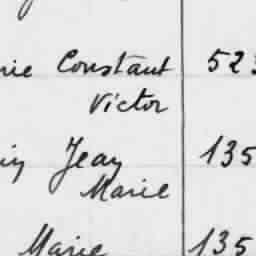 rie Constant 523
Victor
in Jean 135
Marie
Marie 135